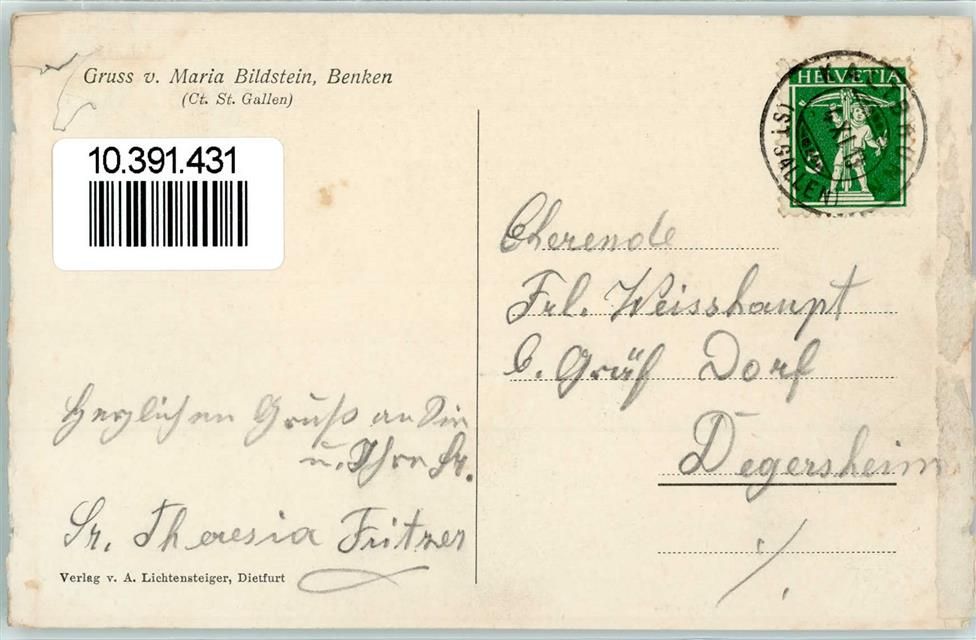 Gruss v. Maria Bildstein, Benken
(Ct. St. Gallen)
10.391.431
HELVETIA
KALTBRUNN
(ST. GALLEN)
Ehrende
Frl. Weisshaupt
b. Gräf Dorf
Degersheim
Herzlichen Gruß an Sie
u. Ihre Sr.
Sr. Theresia
Verlag v. A. Lichtensteiger, Dietfurt